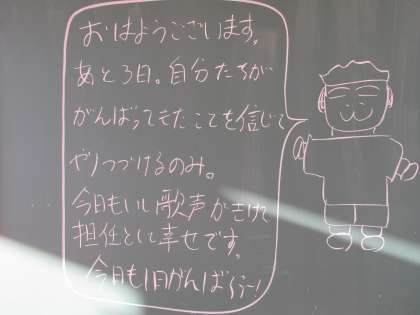 おはようございます。
あと3日。自分たちが
がんばってきたことを信じて
やりつづけるのみ。
今日もいい歌声がきけて
担任として幸せです。
今日も1日がんばろうー!